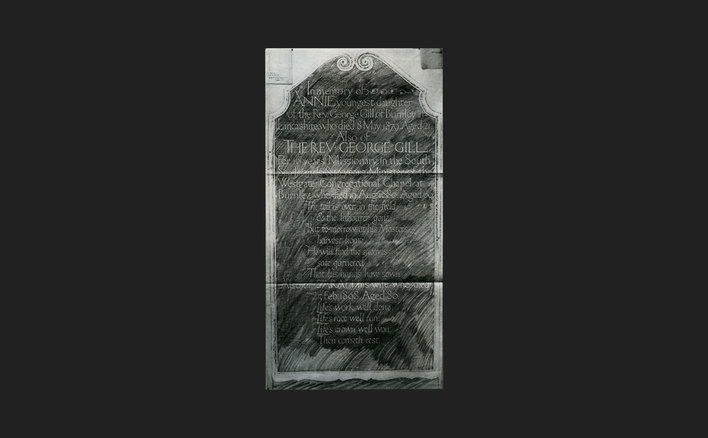 In memory of
ANNIE youngest daughter
of the Rev. George Gill of Burnley
Lancashire, who died 8 May 1879 Aged 21
Also of
THE REV. GEORGE GILL
For 15 years Missionary in the South
Westgate Congregational Chapel at
Burnley, who died 12 Aug. 1880 Aged 60
The toil is over in the field
& the labourer gone
But to-morrow at his Master's
harvest home
He will find the sheaves
safe garnered
That his hands have sown
Also of SARAH his wife who died
27 Feb. 1898 Aged 80
Life's work well done
Life's race well run
Life's crown well won
Then cometh rest.